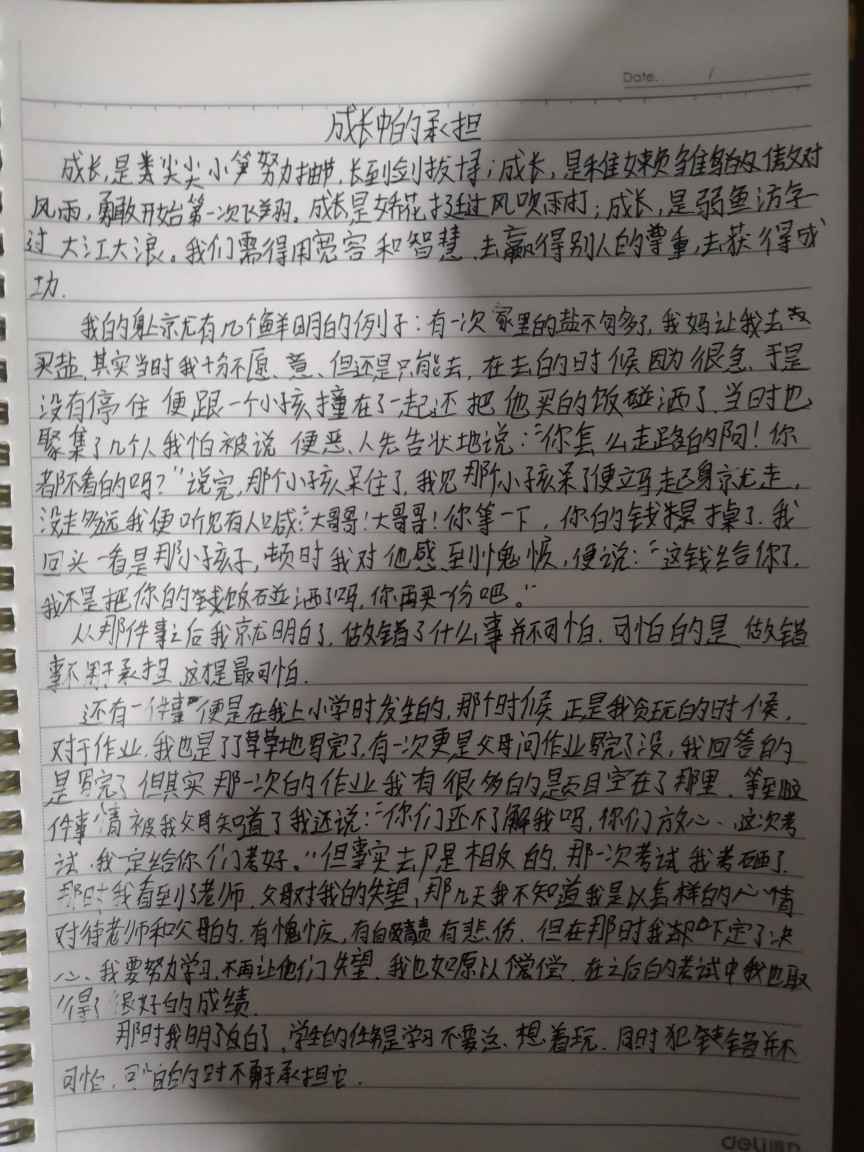 Date. /
成长中的承担
成长,是嫩尖尖小笋努力抽节,长到剑拔土得;成长,是稚嫩雏鹰傲对
风雨,勇敢开始第一次飞翔。成长是娇花挺过风吹雨打;成长,是弱鱼游
过大江大浪。我们需得用宽容和智慧,去赢得别人的尊重,去获得成
功.
我的身上就有几个鲜明的例子:有一次家里的盐不够多了,我妈让我去
买盐,其实当时我十分不愿意、但还是只能去,在去的时候因为很急、于是
没有停住便跟一个小孩撞在了一起,还把他买的饭碰洒了,当时也
聚集了几个人我怕被说 便恶人先告状地说:“你怎么走路的阿!你
都不看的吗?”说完,那个小孩呆住了,我见那个小孩呆了便立马起身就走,
没走多远我便听见有人喊:“大哥哥!大哥哥!你等一下,你的钱掉了.我
回头一看是那小孩子,顿时我对他感到愧疚,便说:“这钱给你了,
我不是把你的饭碰洒了吗,你再买一份吧。”
从那件事之后我就明白了,做错了什么事并不可怕.可怕的是 做错
事不敢于承担 这才是最可怕.
还有一件事 便是在我上小学时发生的,那个时候 正是我贪玩的时候,
对于作业,我也是了了草草地写完了,有一次更是父母问作业写完了没,我回答的
是写完了 但其实 那一次的作业 我有很多的题目空在了那里.等到这
件事情被我父母知道了我还说:“你们还不了解我吗,你们放心、这次考
试,我一定给你们考好。”但事实却是相反的,那一次考试我考砸了,
那时我看到了老师、父母对我的失望,那几天我不知道我是以怎样的心情
对待老师和父母的,有愧疚,有自责有悲伤.但在那时我却下定了决
心、我要努力学习,不再让他们失望.我也如愿以偿.在之后的考试中我也取
得了很好的成绩.
那时我明白了,学生的任务是学习不要总想着玩.同时犯错并不
可怕.可怕的时不勇于承担它.
deli得力